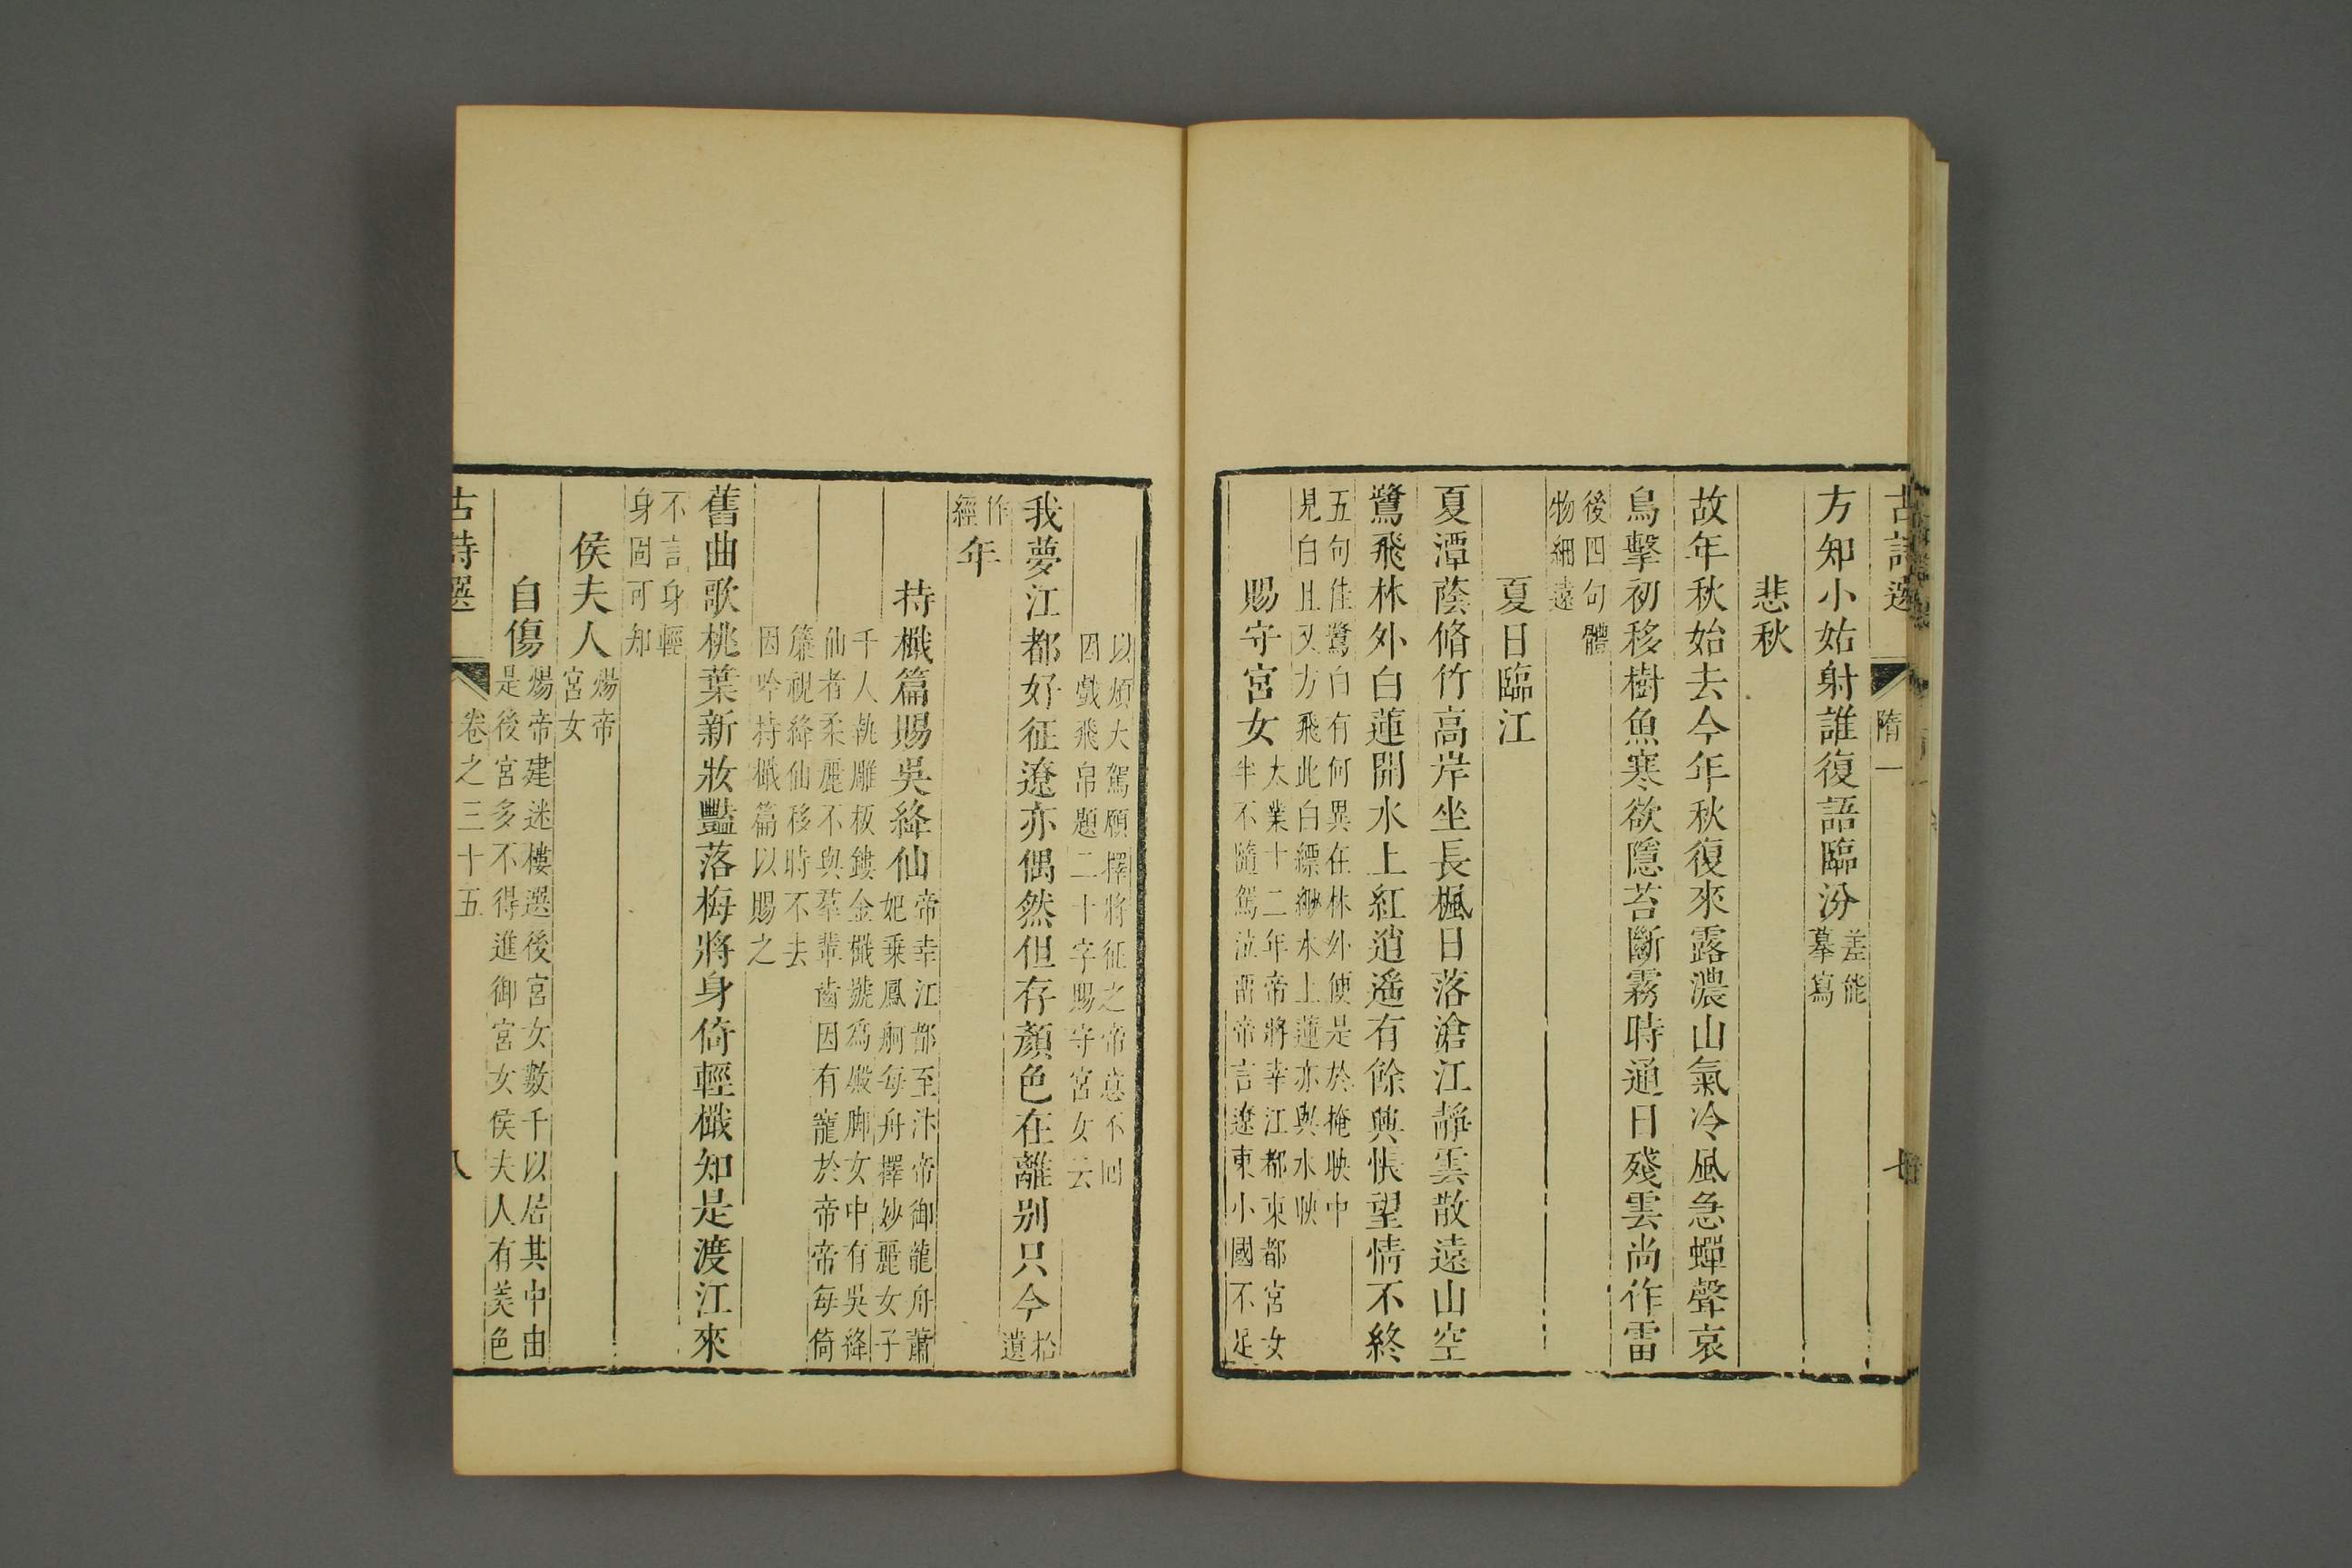 古詩選 隋一 七
方知小姑射誰復語臨汾差能摹寫
悲秋
故年秋始去今年秋復來露濃山氣冷風急蟬聲哀
鳥擊初移樹魚寒欲隱苔斷霧時通日殘雲尚作雷
後四句體物細遠
夏日臨江
夏潭蔭脩竹高岸坐長楓日落滄江靜雲散遠山空
鷺飛林外白蓮開水上紅逍遙有餘興悵望情不終
五句佳鷺白有何異在林外便是於掩映中
見白且又方飛此白縹緲水上蓮亦與水映
賜守宮女大業十二年帝將幸江都東都宮女
半不隨駕泣留帝言遼東小國不足
以煩大駕願擇將征之帝意不回
因戲飛帛題二十字賜守宮女云
我夢江都好征遼亦偶然但存顏色在離別只今拾遺
作經年
持檝篇賜吳絳仙帝幸江都至汴帝御龍舟蕭
妃乗鳳舸每舟擇妙麗女子
千人執雕板鏤金檝號爲殿脚女中有吳絳
仙者柔麗不與羣輩齒因有寵於帝帝每倚
簾視絳仙移時不去
因吟持檝篇以賜之
舊曲歌桃葉新妝豔落梅將身倚輕檝知是渡江來
不言身輕
身固可知
侯夫人煬帝宮女
自傷煬帝建迷樓選後宮女數千以居其中由
是後宮多不得進御宮女侯夫人有美色
古詩選 卷之三十五 八